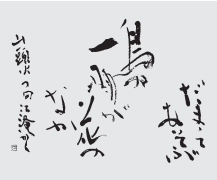 だまつて
あそぶ
鳥の
一羽が
花の
なか
山頭火の句